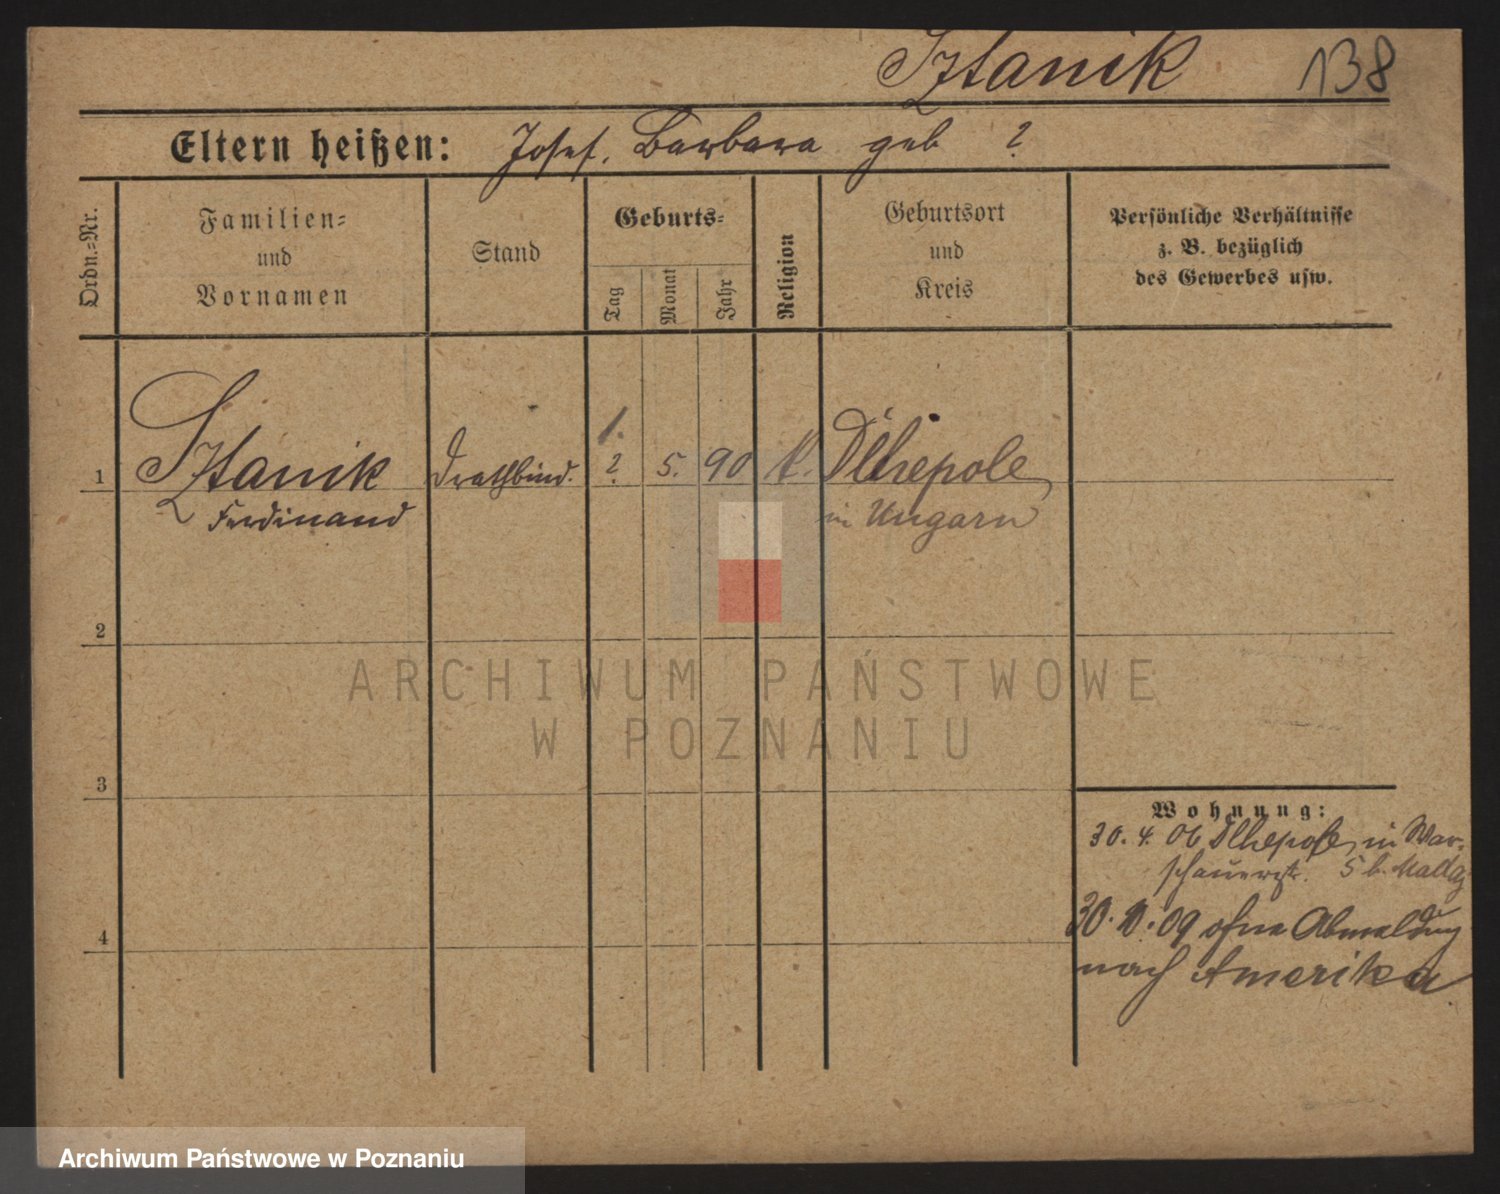 Sztanik 138
Eltern heißen: Josef, Barbara geb ?
Ordn.=Nr.
Familien=
und
Vornamen
Stand
Geburts=
Tag
Monat
Jahr
Religion
Geburtsort
und
Kreis
Persönliche Verhältnisse
z. B. bezüglich
des Gewerbes usw.
1.
1 Sztanik Drathbind. ? 5. 90 k. Dlhepole
Ferdinand in Ungarn
2
3
4
Wohnung:
30. 4. 06 Dlhepole, in War-
schauerstr. 5 b. Mallg
30. 09 ohne Abmeldung
nach Amerika
ARCHIWUM PAŃSTWOWE
W POZNANIU
Archiwum Państwowe w Poznaniu